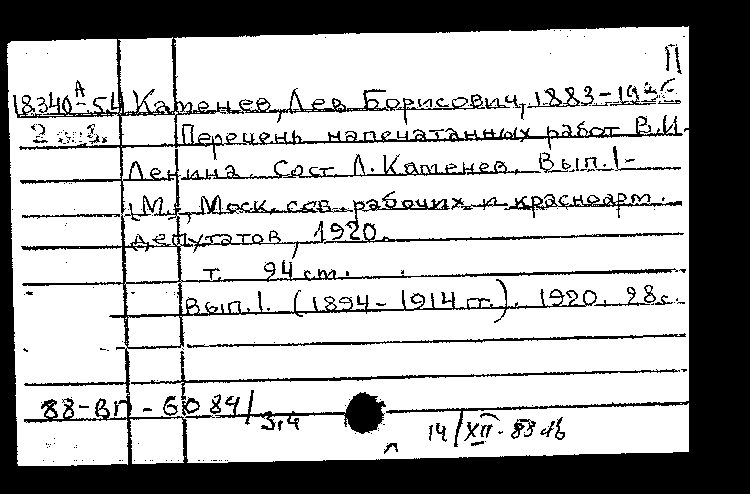 П
18340-54 А Каменев, Лев Борисович, 1883-1936
2 экз. Перечень напечатанных работ В.И.
Ленина. Сост. Л. Каменев. Вып. 1-
[М.], Моск. сов. рабочих и красноарм.
депутатов, 1920.
т. 24 см.
Вып. 1. (1894-1914 гг.). 1920. 28 с.
88-ВП-6084/3,4
14/XII-83